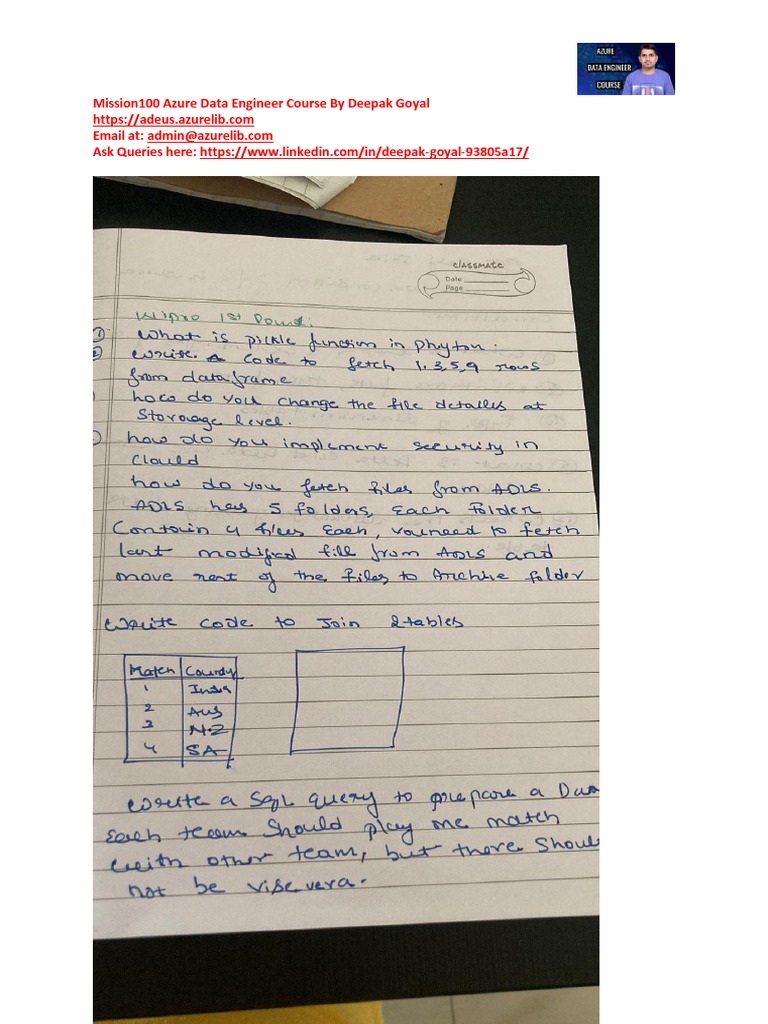 AZURE
DATA ENGINEER
COURSE
Mission100 Azure Data Engineer Course By Deepak Goyal
https://adeus.azurelib.com
Email at: admin@azurelib.com
Ask Queries here: https://www.linkedin.com/in/deepak-goyal-93805a17/
classmate
Date
Page
Wipro 1st Round:
① What is pickle function in Phyton.
② Write a code to fetch 1,3,5,9 rows
from dataframe
how do you change the file detailes at
Storage level.
how do you implement security in
Clould
how do you fetch files from ADLS.
ADLS has 5 folders, Each Folder
Contain 4 files Each, you need to fetch
last modified fill from ADLS and
move rest of the files to Archive folder
Write code to Join 2tables
Match Country
1 India
2 Aus
3 N.Z
4 SA
Write a Sql query to prepare a
Each team Should play one match
with other team, but there Shoul
not be vise vera.